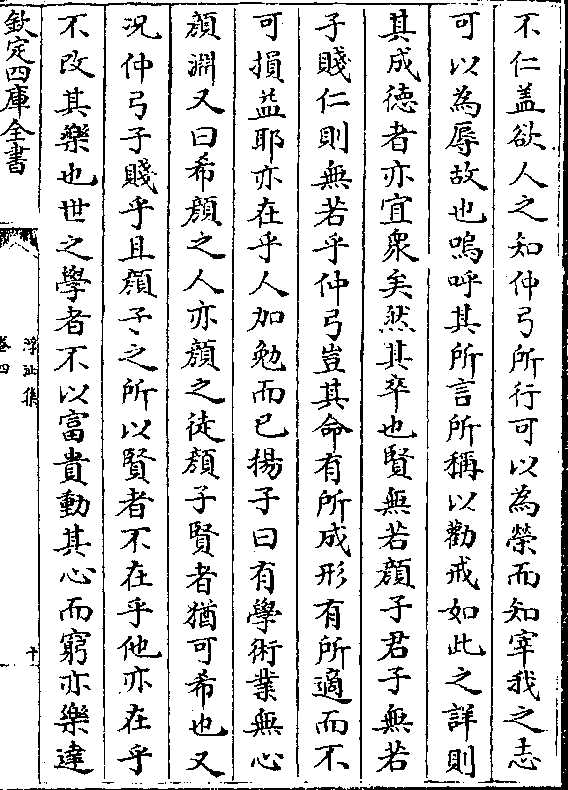 不仁盖欲人之知仲弓所行可以為榮而知宰我之志
可以為辱故也嗚呼其所言所稱以勸戒如此之詳則
其成徳者亦宜衆矣然其卒也賢無若顔子君子無若
子賤仁則無若乎仲弓豈其命有所成形有所適而不
可損益耶亦在乎人加勉而已揚子曰有學術業無心
顔淵又曰希顔之人亦顔之徒顔子賢者猶可希也又
况仲弓子賤乎且顔子之所以賢者不在乎他亦在乎
不改其樂也世之學者不以富貴動其心而窮亦樂達
欽定四庫全書
浮沚集
卷四
十